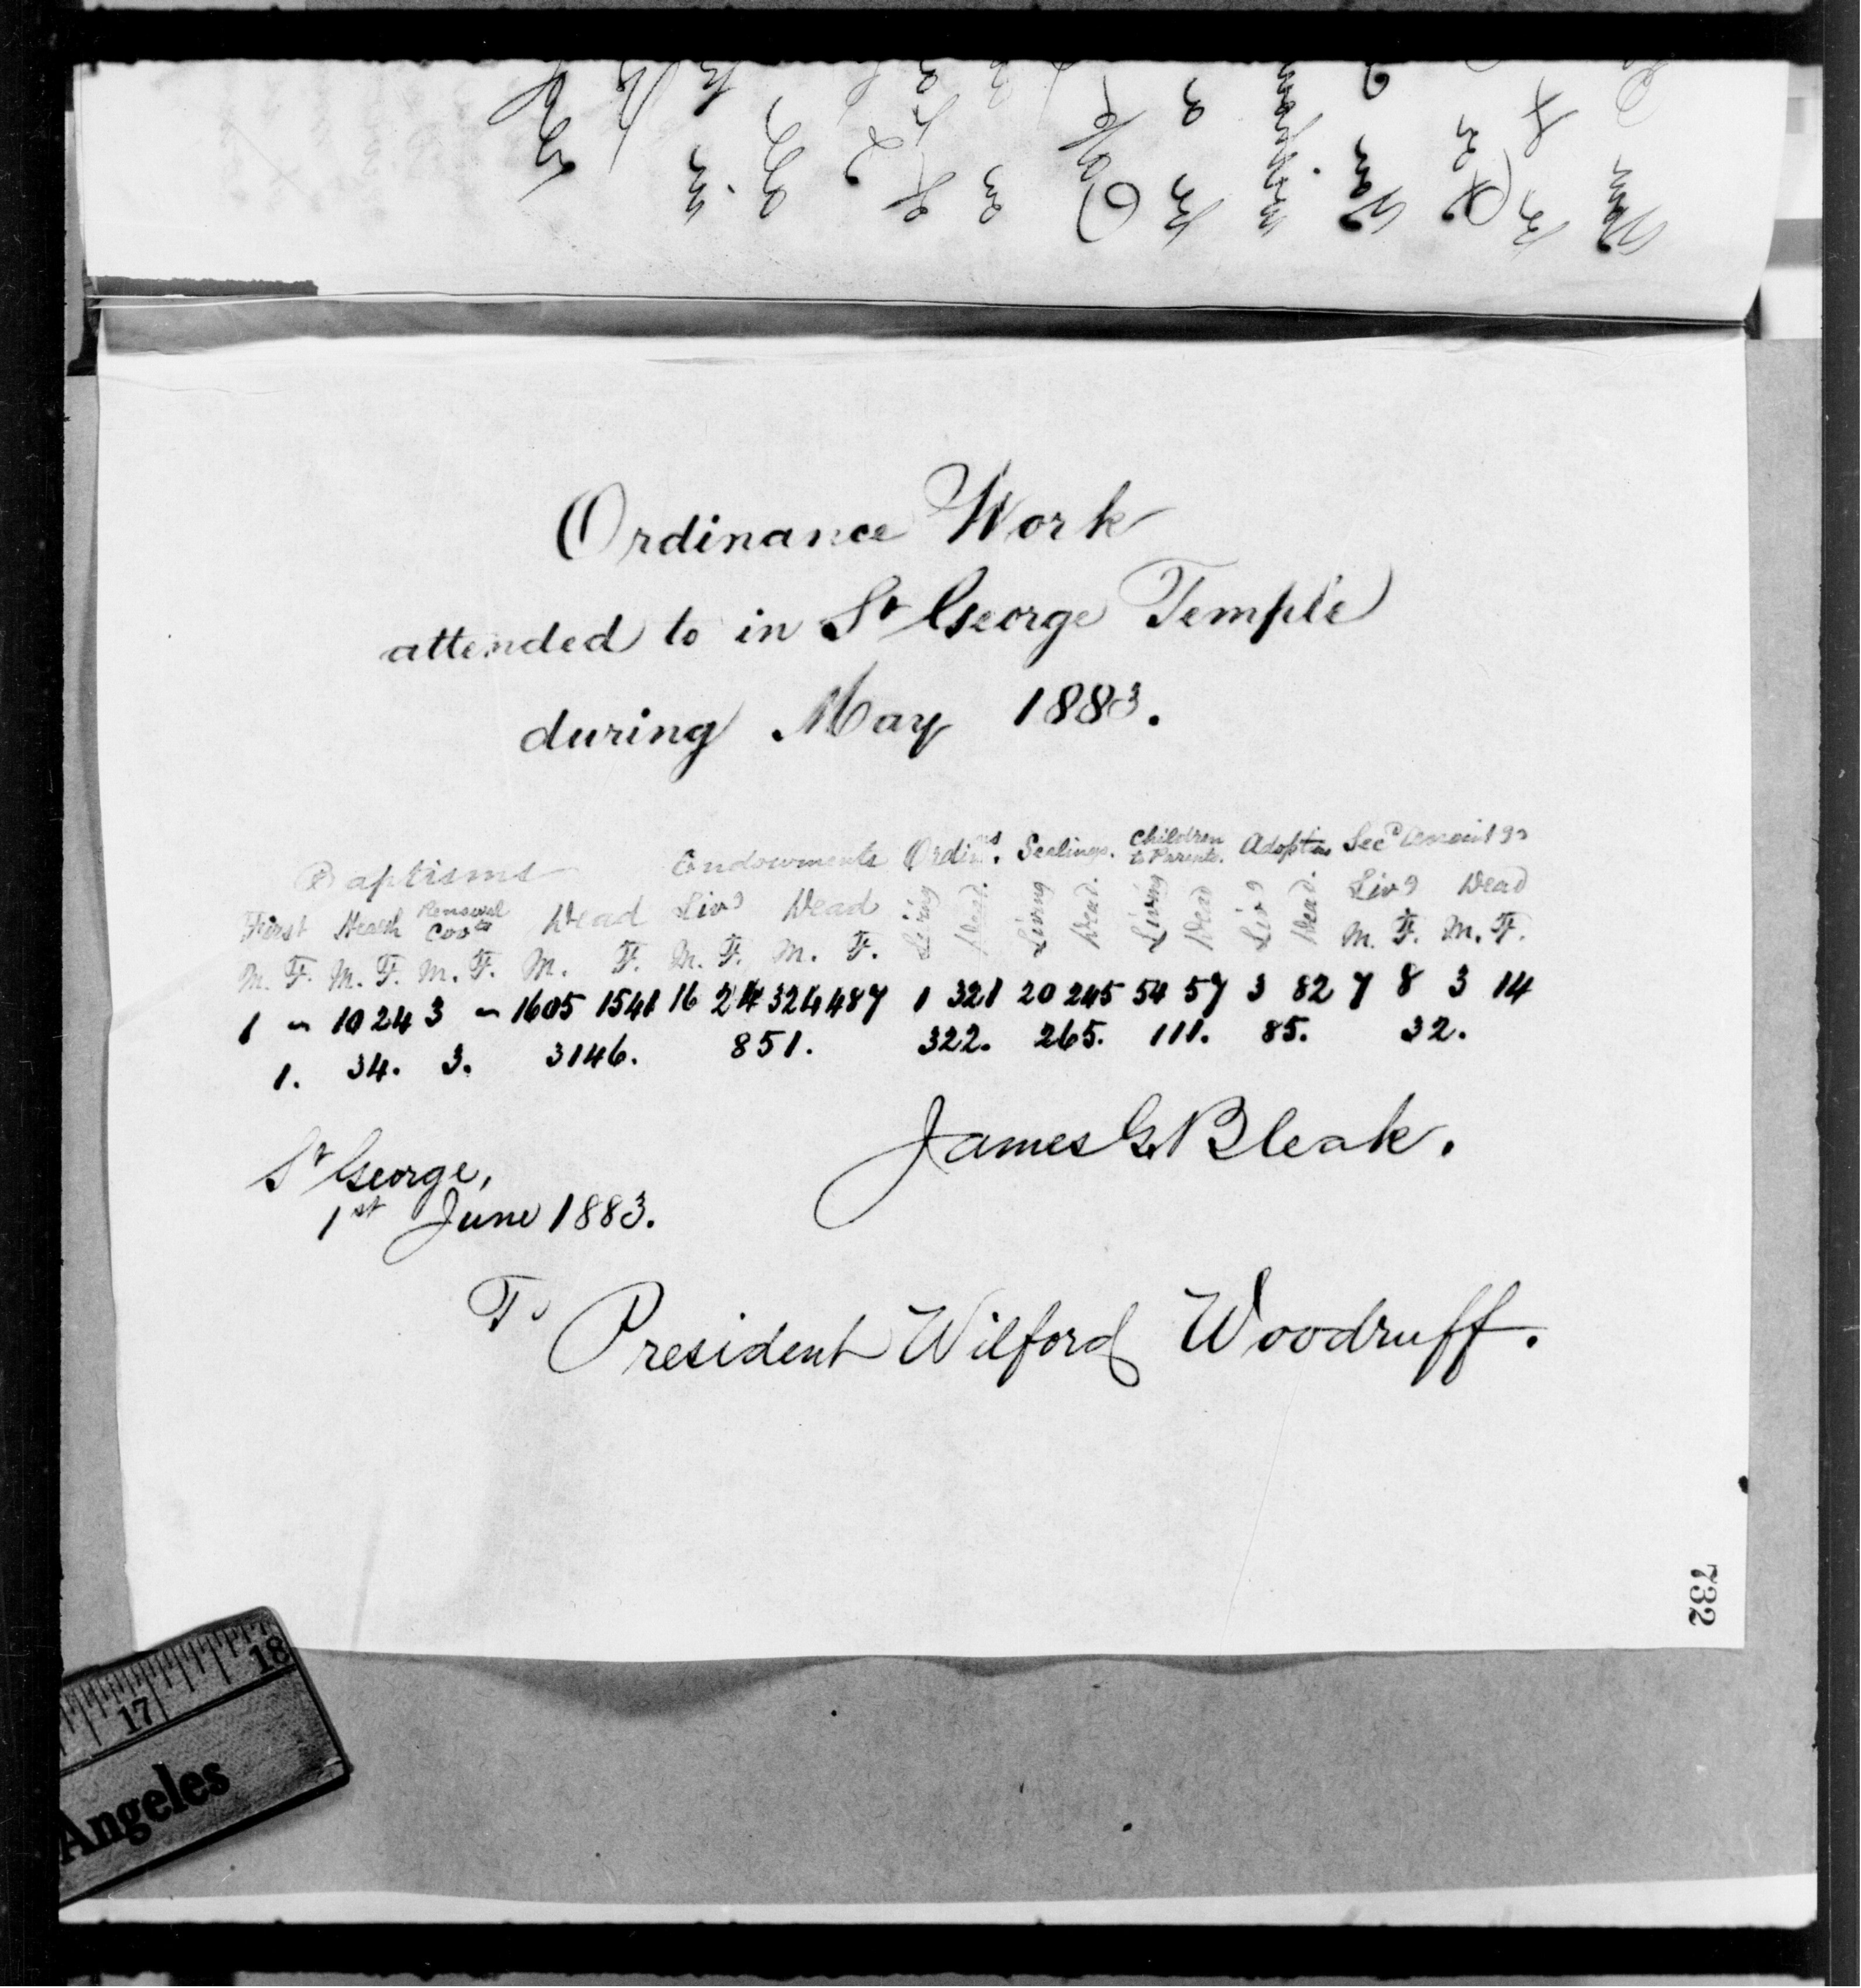 Ordinance Work
attended to in St George Temple
during May 1883.
Baptisms Endowments Ordins. Sealings. Children to Parents. Adoptns Secd Anointgs
First Health Renewal Covts Dead Livg Dead Living Dead. Living Dead. Living Dead Livg Dead. Livg Dead
M. F. M. F. M. F. M. F. M. F. M. F. M. F. M. F.
1 ~ 10 24 3 ~ 1605 1541 16 24 324 487 1 321 20 245 54 57 3 82 7 8 3 14
1. 34. 3. 3146. 851. 322. 265. 111. 85. 32.
James G. Bleak.
St George,
1st June 1883.
To President Wilford Woodruff.
732
18
17
Angeles